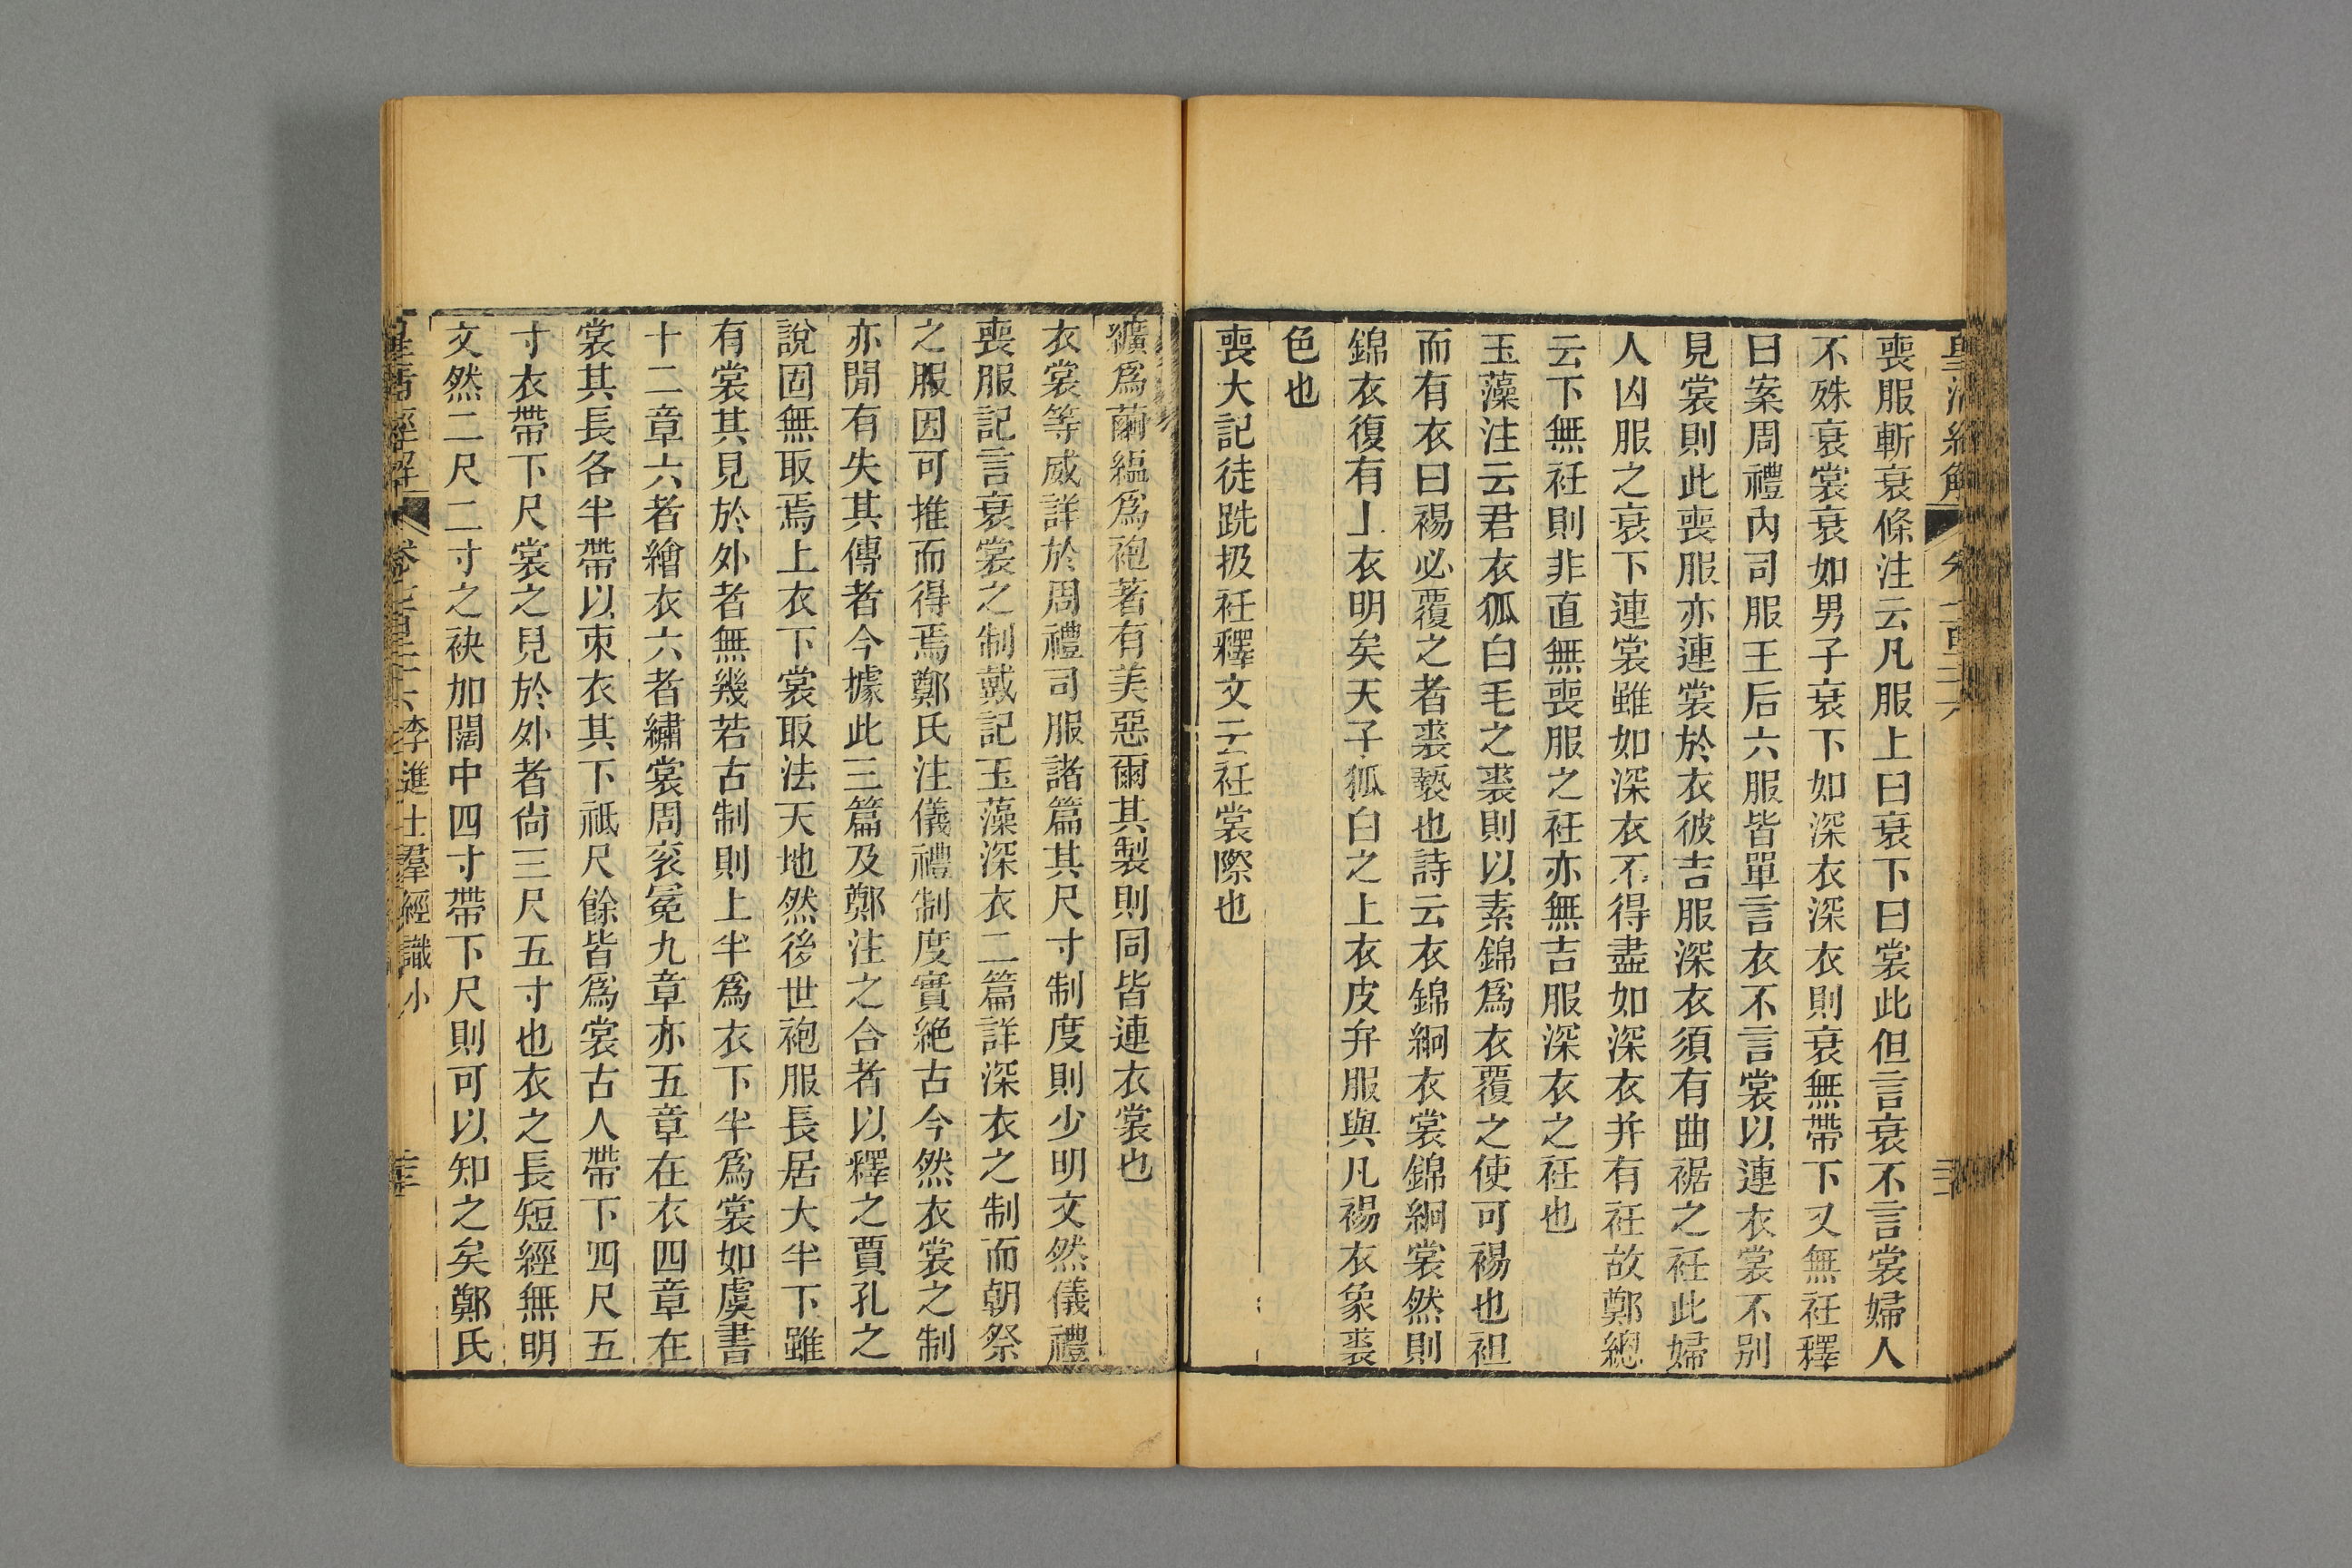 喪服斬衰條注云凡服上曰衰下曰裳此但言衰不言裳婦人
不殊裳衰如男子衰下如深衣深衣則衰無帶下又無衽釋
曰案周禮內司服王后六服皆單言衣不言裳以連衣裳不別
見裳則此喪服亦連裳於衣彼吉服深衣須有曲裾之衽此婦
人凶服之衰下連裳雖如深衣不得盡如深衣并有衽故鄭總
云下無衽則非直無喪服之衽亦無吉服深衣之衽也
玉藻注云君衣狐白毛之裘則以素錦爲衣覆之使可裼也袒
而有衣曰裼必覆之者裘褻也詩云衣錦絅衣裳錦絅裳然則
錦衣復有上衣明矣天子狐白之上衣皮弁服與凡裼衣象裘
色也
喪大記徒跣扱衽釋文云衽裳際也
纊爲繭縕爲袍著有美惡爾其製則同皆連衣裳也
衣裳等威詳於周禮司服諸篇其尺寸制度則少明文然儀禮
喪服記言衰裳之制戴記玉藻深衣二篇詳深衣之制而朝祭
之服因可推而得焉鄭氏注儀禮制度實絕古今然衣裳之制
亦閒有失其傳者今據此三篇及鄭注之合者以釋之賈孔之
說固無取焉上衣下裳取法天地然後世袍服長居大半下雖
有裳其見於外者無幾若古制則上半爲衣下半爲裳如虞書
十二章六者繪衣六者繡裳周袞冕九章亦五章在衣四章在
裳其長各半帶以束衣其下祗尺餘皆爲裳古人帶下四尺五
寸衣帶下尺裳之見於外者尙三尺五寸也衣之長短經無明
文然二尺二寸之袂加闊中四寸帶下尺則可以知之矣鄭氏
皇淸經解 李進士羣經識小